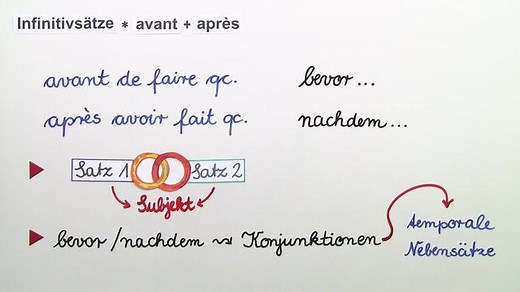 Infinitivsätze * avant + après
avant de faire qc. bevor ...
après avoir fait qc. nachdem ...
Satz 1 Satz 2
Subjekt
bevor / nachdem ⇝ Konjunktionen
temporale
Nebensätze